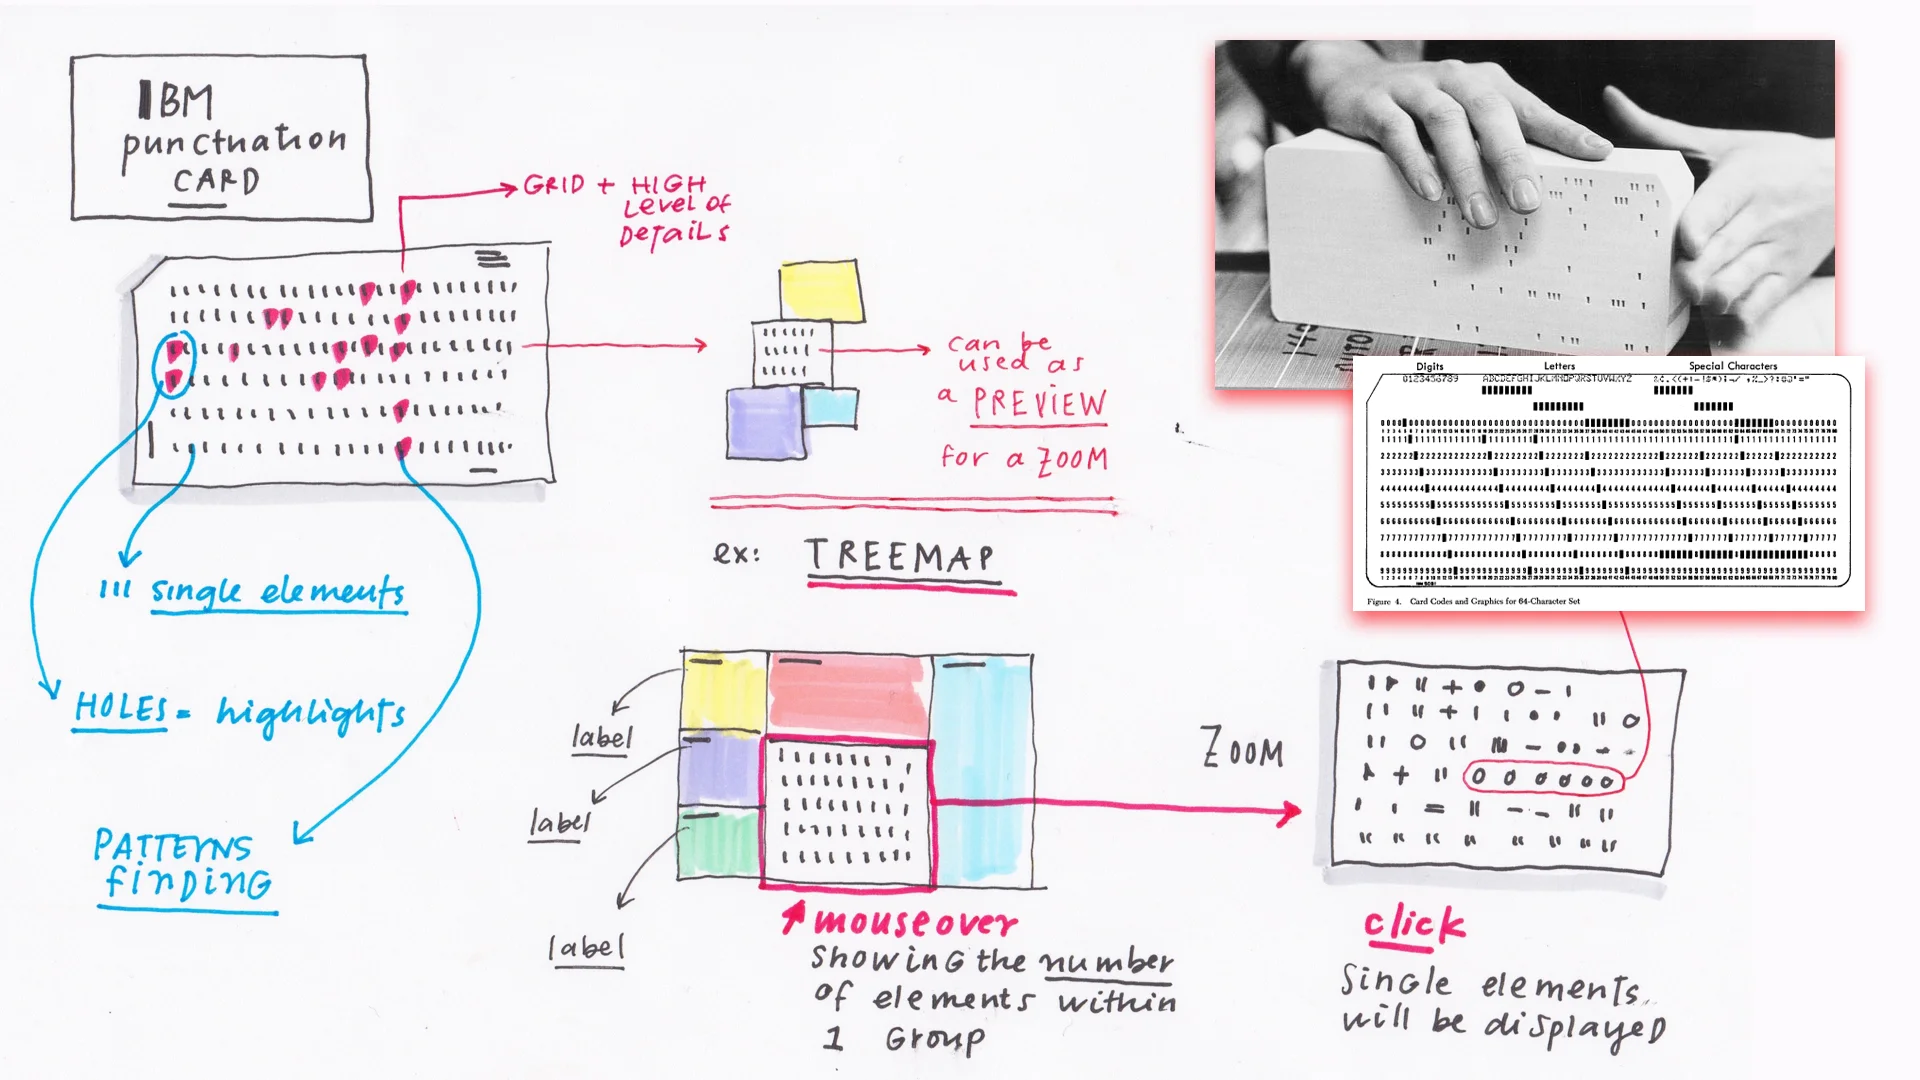 IBM
punctuation
CARD
GRID + HIGH
Level of
Details
can be
used as
a PREVIEW
for a ZOOM
ex: TREEMAP
single elements
HOLES = highlights
PATTERNS
finDinG
label
label
label
mouseover
Showing the number
of elements within
1 Group
ZOOM
click
Single elements
will be displayed
Digits Letters Special Characters
0123456789 ABCDEFGHIJKLMNOPQRSTUVWXYZ
Figure 4. Card Codes and Graphics for 64-Character Set